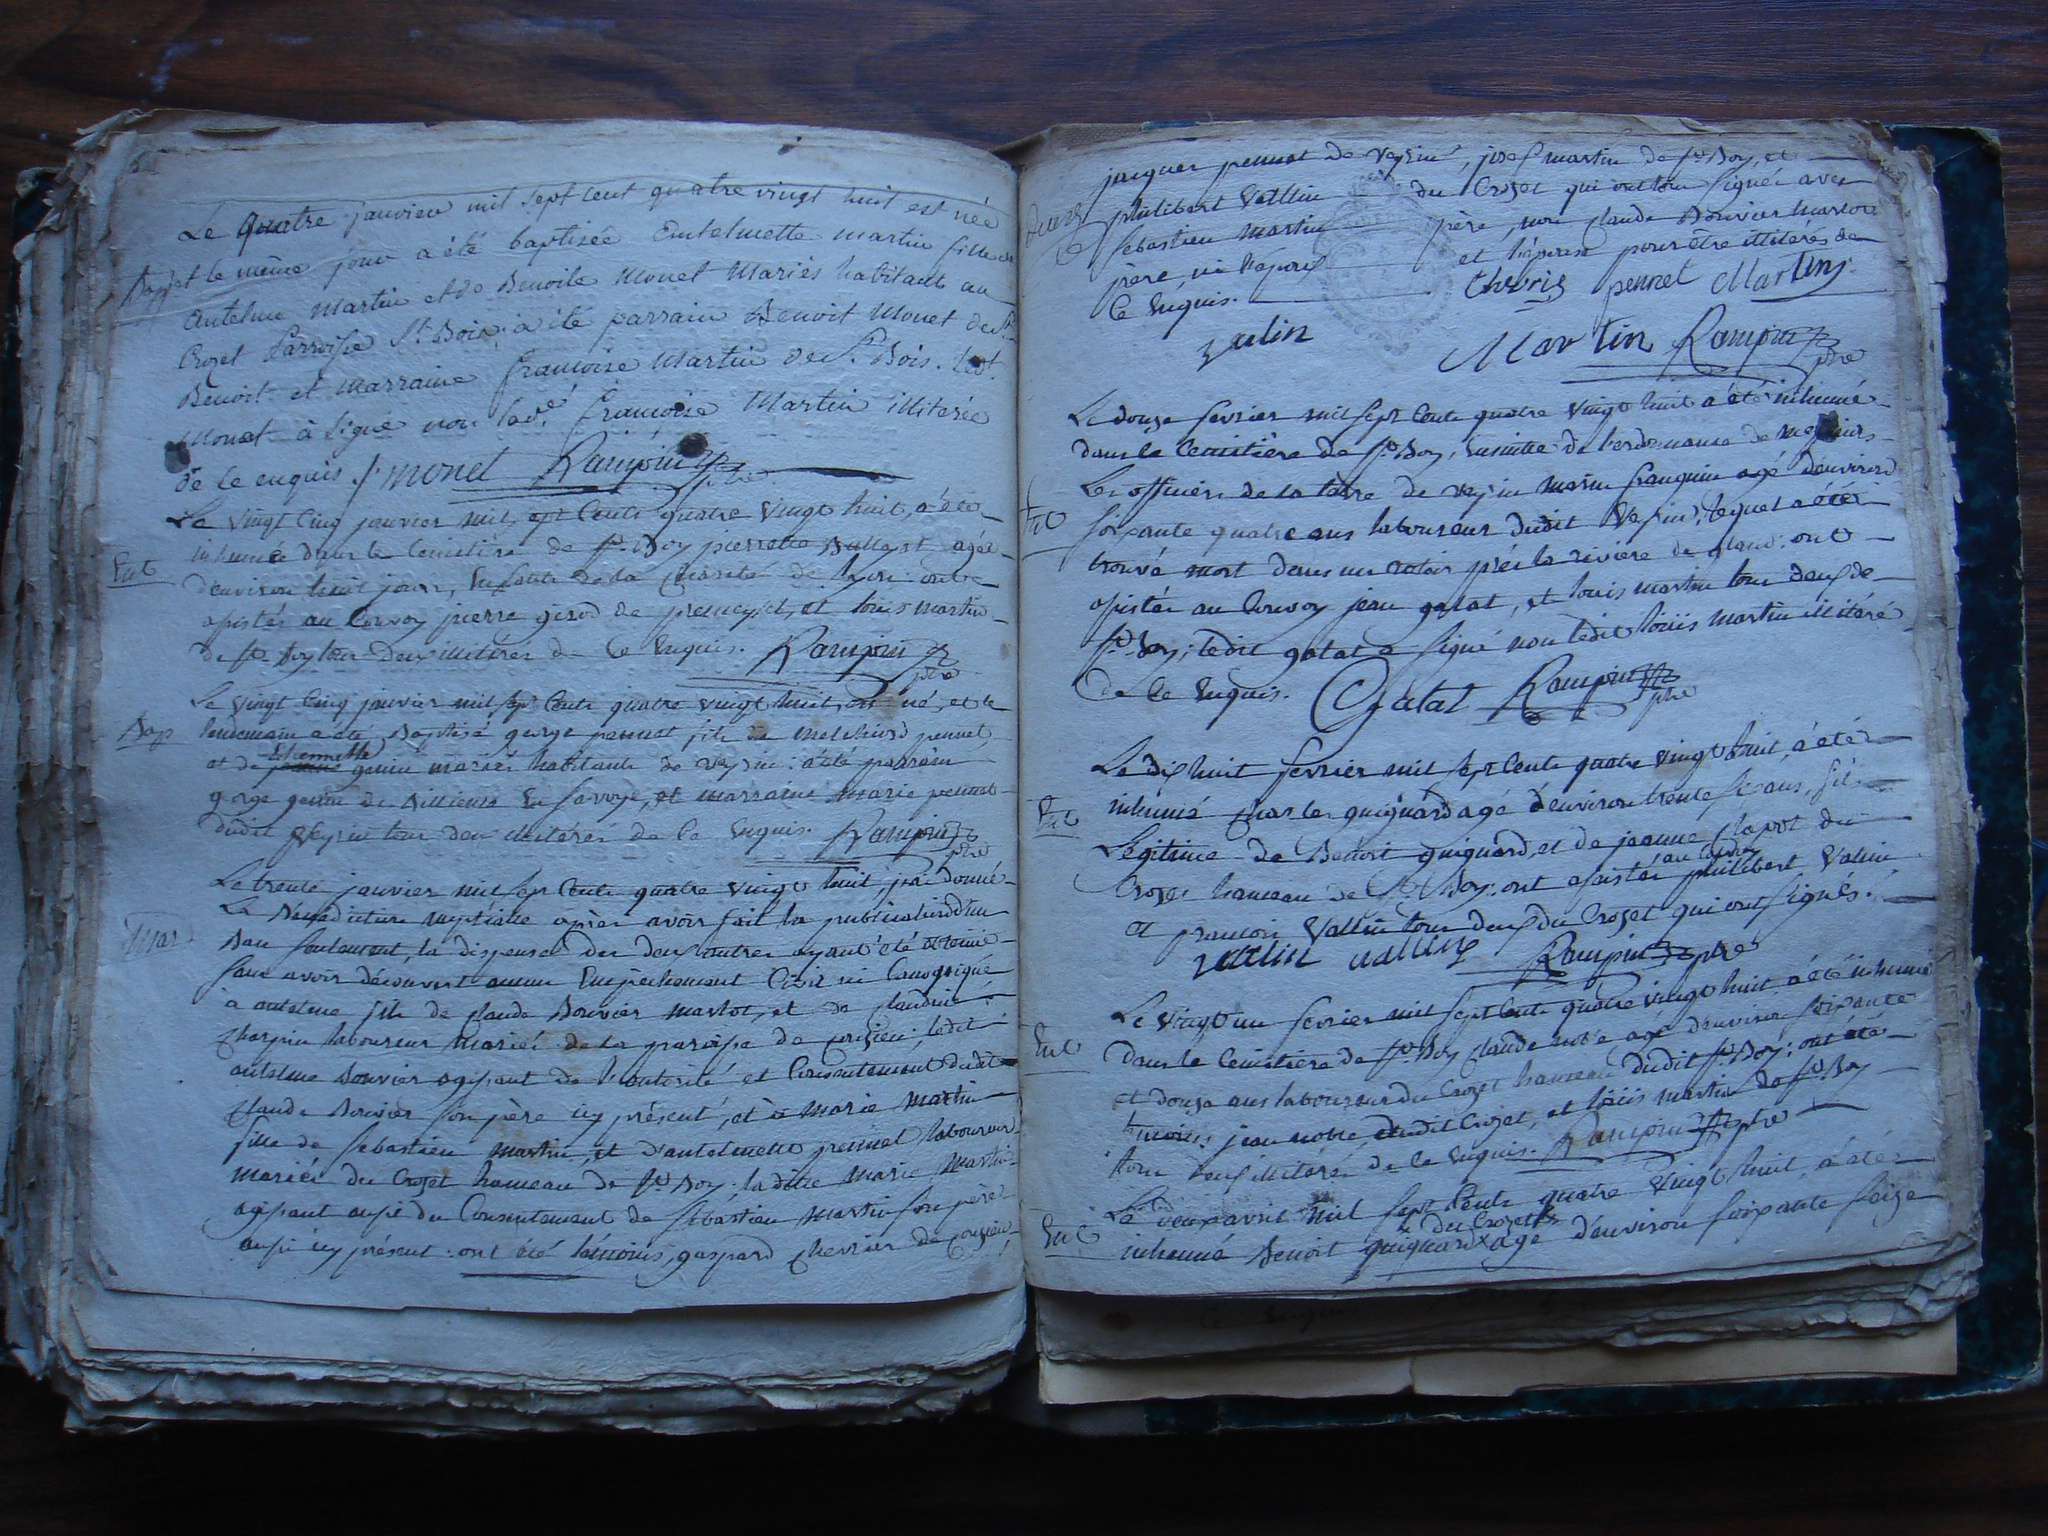 Le quatre janvier mil sept cent quatre vingt huit est née
Bap et le même jour a été baptisée Antelmette martin fille
Antelme Martin et de Benoite Monet Mariés habitants au
Crozet Parroisse St Bois; a été parrain Benoit Monet de St
Benoit et marraine francoise Martin de St Bois. led.
Monet à signé non lad.e Francoise Martin illiterée
de ce enquis. monet Rampin ptre
Le vingt cinq janvier mil sept cents quatre vingt huit, a été
Ent inhumée dans le cemitière de St Boy pierrette agée
d'environ huit jours, Enfant de la charité de lyon: ont
assistés au convoy pierre girod de premeyzel, et louis martin
de St Boy tous deux illiterés de ce Enquis. Rampin ptre
Le vingt cinq janvier mil sept cents quatre vingt huit, est né, et le
Bap lendemain a été Baptisé george pennet fils de melchiord pennet,
Etiennette
et de genin mariés habitants de veysin: a été parrain
gorge genin de Billieme En Savoye, et marraine Marie pennet
dudit Veysin tous deux illiterés de ce Enquis. Rampin ptre
Le trente janvier mil sept cents quatre vingt huit, j'ai donné
Mar La Benediction nuptiale après avoir fait la publication d'un
Ban seulement, la dispense des deux autres ayant été obtenue
sans avoir découvert aucun Empechement Civil ni Canonique
à antelme fils de claude Bouvier marlot, et de claudine
charpin laboureur mariés de la paroisse de conzieu; ledit
antelme Bouvier agissant de l'autorité et Consentement dudit
claude Bouvier son père icy présent, et à Marie Martin
fille de sebastien martin, et d'antelmette pennet laboureur
mariés du Crozet hameau de St Boy. ladite Marie Martin
agissant aussi du Consentement de sébastien Martin son père
aussi icy présent: ont été témoins, gaspard chevrier de conzieu,
jacques pennet de veysin, josef martin de St Boy, et
philibert Vallin du Crozet qui ont tous signés avec
sebastien martin père, non claude Bouvier Marlot
père ni l'époux et l'épouse pour être illiterés de
ce Enquis. pennet Martin
valin Martin Rampin ptre
Le douze fevrier mil sept cents quatre vingt huit a été inhumé
dans le cemitière de St Boy, Ensuitte de l'ordonnance de messieurs
Les officiers de la terre de veysin marin franquin agé d'environ
Ent soixante quatre ans laboureur dudit Veysin, lequel a été
trouvé mort dans un près la rivière de gland: ont
assistés au Convoy jean galat, et louis martin tous deux de
St Boy; ledit galat a signé non ledit louis martin illitéré
de ce Enquis. Galat Rampin ptre
Le dix huit fevrier mil sept cents quatre vingt huit, a été
Ent inhumé charles guignard agé d'environ trente six ans, fils
Légitime de Benoit guignard, et de jeanne du
au convoy
Crozet hameau de St Boy: ont assistés philibert Vallin
et francois Vallin tous deux du Crozet qui ont signés.
valin vallin Rampin ptre
Le vingt un fevrier mil sept cents quatre vingt huit, a été inhumé
Ent dans le Cemitière de St Boy claude agé d'environ soixante
et douze ans laboureur du Crozet hameau dudit St Boy: ont été
témoins jean dudit Crozet, et louis martin de St Boy
tous deux illitérés de ce Enquis. Rampin ptre
Le avril mil sept cents quatre vingt huit, a été
du Crozet
Ent inhumé Benoit guignard agé d'environ soixante seize